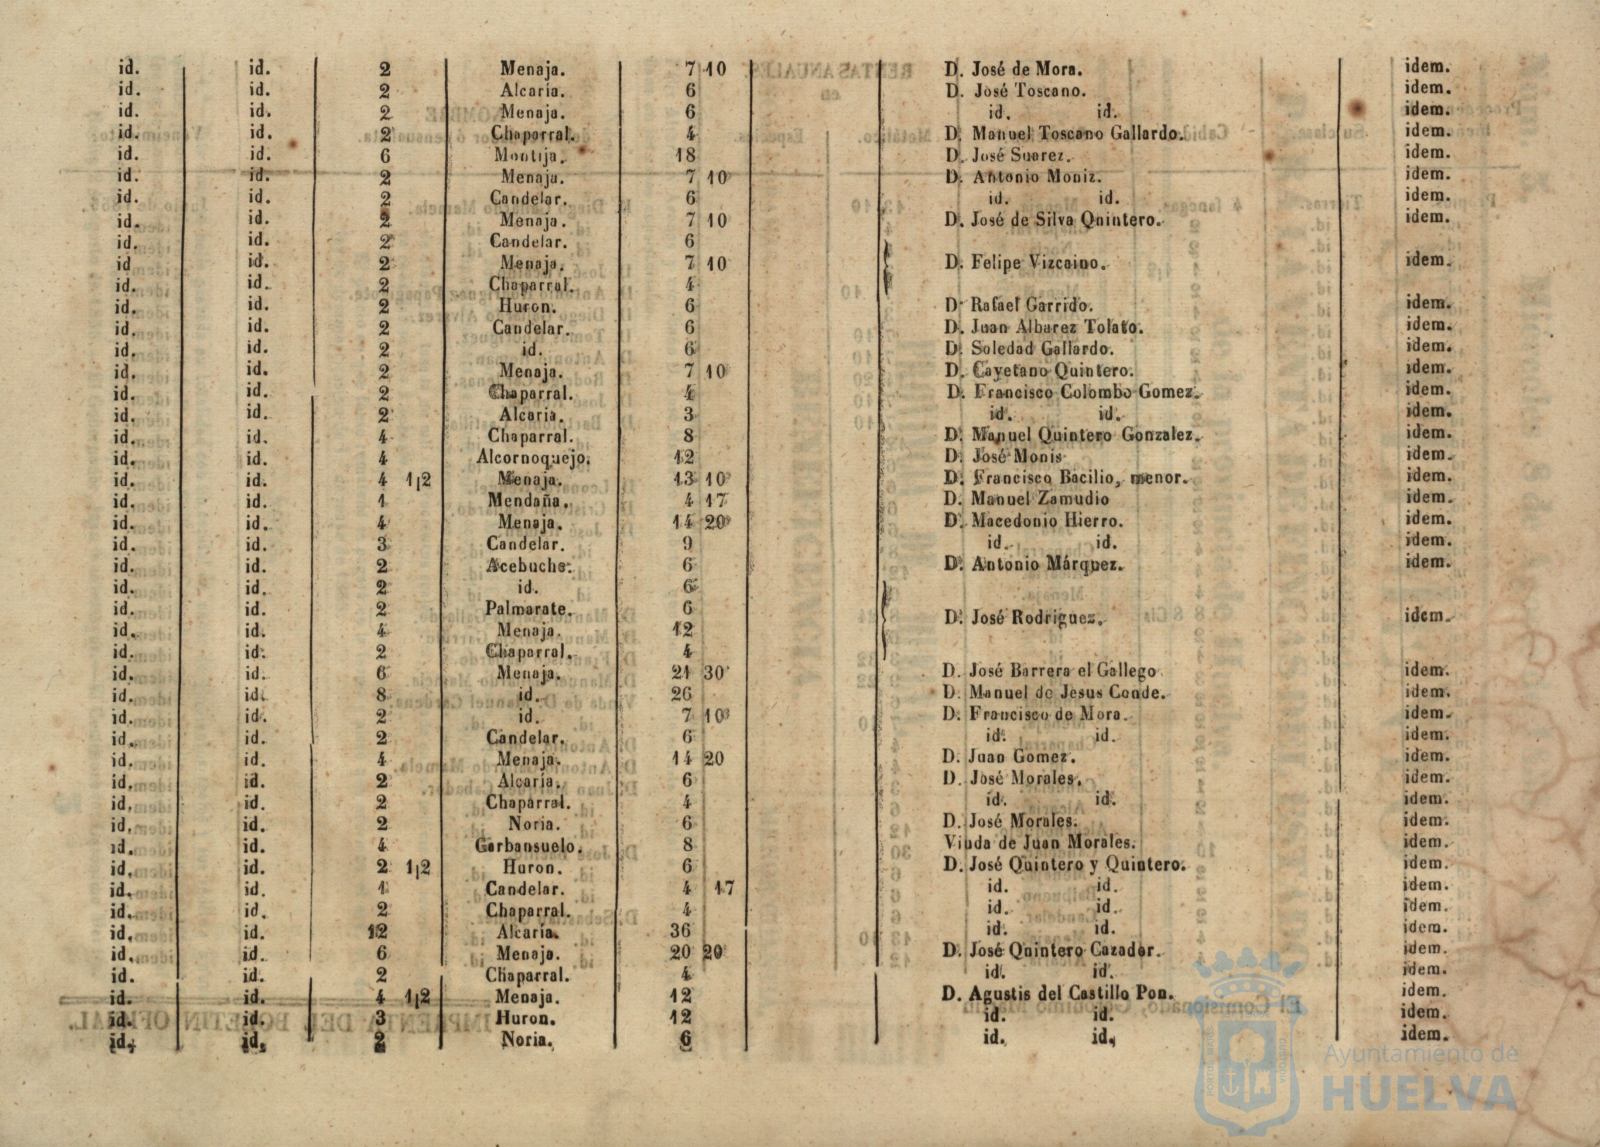 id. id. 2 Menaja. 7 10 D. José de Mora. idem.
id. id. 2 Alcaria. 6 D. José Toscano. idem.
id. id. 2 Menaja. 6 id. id. idem.
id. id. 2 Chaparral. 4 D. Manuel Toscano Gallardo. idem.
id. id. 6 Montija. 18 D. José Suarez. idem.
id. id. 2 Menaja. 7 10 D. Antonio Moniz. idem.
id. id. 2 Candelar. 6 id. id. idem.
id. id. 2 Menaja. 7 10 D. José de Silva Qnintero. idem.
id. id. 2 Candelar. 6
id id. 2 Menaja. 7 10 D. Felipe Vizcaino. idem.
id. id. 2 Chaparral. 4
id. id. 2 Huron. 6 D. Rafael Garrido. idem.
id. id. 2 Candelar. 6 D. Juan Albarez Tolato. idem.
id. id. 2 id. 6 D. Soledad Gallardo. idem.
id. id. 2 Menaja. 7 10 D. Cayetano Quintero. idem.
id. id. 2 Chaparral. 4 D. Francisco Colombo Gomez. idem.
id. id. 2 Alcaria. 3 id. id. idem.
id. id. 4 Chaparral. 8 D. Manuel Quintero Gonzalez. idem.
id. id. 4 Alcornoquejo. 12 D. José Monis idem.
id. id. 4 1¡2 Menaja. 13 10 D. Francisco Bacilio, menor. idem.
id. id. 1 Mendaña. 4 17 D. Manuel Zamudio idem.
id. id. 4 Menaja. 14 20 D. Macedonio Hierro. idem.
id. id. 3 Candelar. 9 id. id. idem.
id. id. 2 Acebuche. 6 D. Antonio Márquez. idem.
id. id. 2 id. 6
id. id. 2 Palmarate. 6 D. José Rodriguez. idem.
id. id. 4 Menaja. 12
id. id. 2 Chaparral. 4
id. id. 6 Menaja. 21 30 D. José Barrera el Gallego idem.
id. id. 8 id. 26 D. Manuel de Jesus Conde. idem.
id. id. 2 id. 7 10 D. Francisco de Mora. idem.
id. id. 2 Candelar. 6 id. id. idem.
id. id. 4 Menaja. 14 20 D. Juan Gomez. idem.
id. id. 2 Alcaría. 6 D. José Morales. idem.
id. id. 2 Chaparral. 4 id. id. idem.
id. id. 2 Noria. 6 D. José Morales. idem.
id. id. 4 Garbansuelo. 8 Viuda de Juan Morales. idem.
id. id. 2 1¡2 Huron. 6 D. José Quintero y Quintero. idem.
id. id. 1 Candelar. 4 17 id. id. idem.
id. id. 2 Chaparral. 4 id. id. idem.
id. id. 12 Alcaría. 36 id. id. idem.
id. id. 6 Menaja. 20 20 D. José Quintero Cazador. idem.
id. id. 2 Chaparral. 4 id. id. idem.
id. id. 4 1¡2 Menaja. 12 D. Agustis del Castillo Pon. idem.
id. id. 3 Huron. 12 id. id. idem.
id. id. 2 Noria. 6 id. id. idem.
Ayuntamiento de
HUELVA